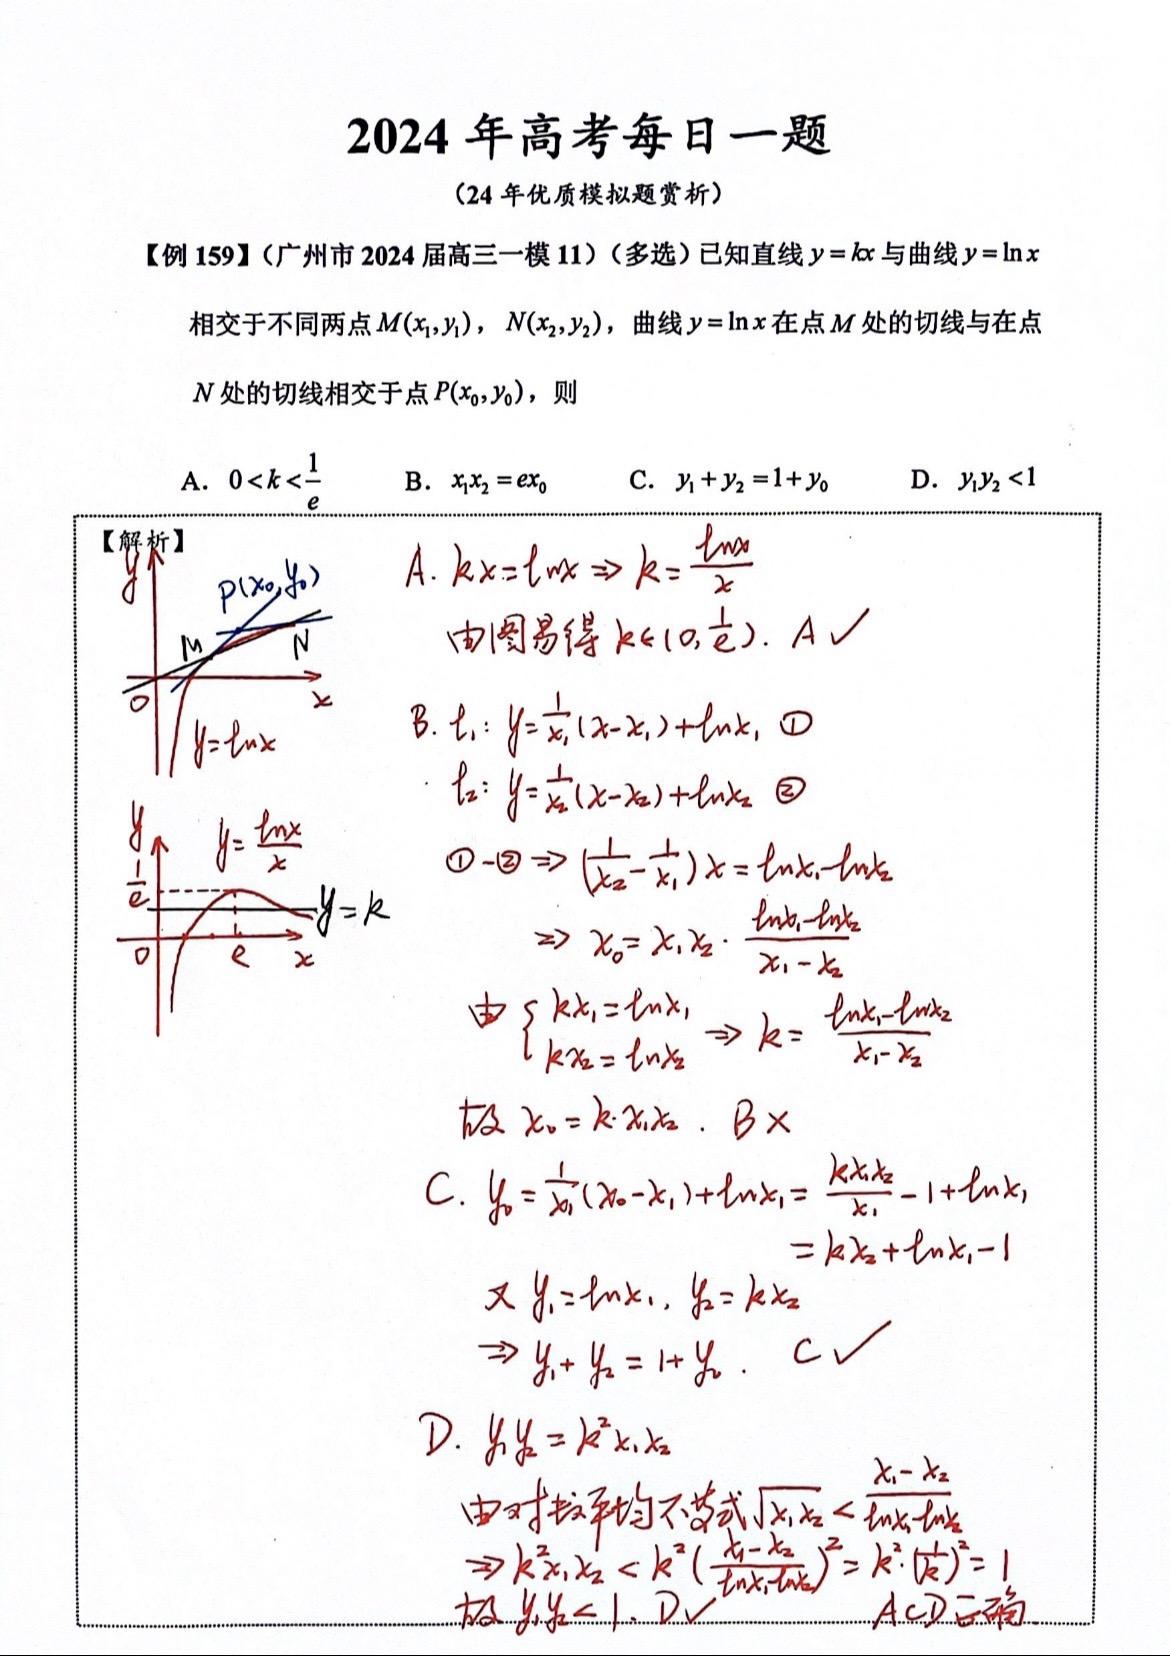 2024 年高考每日一题
（24 年优质模拟题赏析）
【例 159】（广州市 2024 届高三一模 11）（多选）已知直线 y = kx 与曲线 y = ln x
相交于不同两点 M(x₁, y₁)，N(x₂, y₂)，曲线 y = ln x 在点 M 处的切线与在点
N 处的切线相交于点 P(x₀, y₀)，则
A. 0 < k < 1/e B. x₁x₂ = ex₀ C. y₁ + y₂ = 1 + y₀ D. y₁y₂ < 1
【解析】
y
P(x₀, y₀)
M
N
O
x
y=lnx
y
y= lnx/x
1/e
y=k
O
e
x
A. kx=lnx ⇒ k= lnx/x
由图易得 k∈(0, 1/e). A ✓
B. l₁: y= 1/x₁ (x-x₁)+lnx₁ ①
l₂: y= 1/x₂ (x-x₂)+lnx₂ ②
①-② ⇒ (1/x₂ - 1/x₁) x = lnx₁-lnx₂
⇒ x₀= x₁x₂ · (lnx₁-lnx₂)/(x₁-x₂)
由 { kx₁=lnx₁
kx₂=lnx₂ ⇒ k= (lnx₁-lnx₂)/(x₁-x₂)
故 x₀=k·x₁x₂ . B ×
C. y₀= 1/x₁ (x₀-x₁)+lnx₁= kx₁x₂/x₁ -1+lnx₁
= kx₂+lnx₁-1
又 y₁=lnx₁, y₂=kx₂
⇒ y₁+y₂=1+y₀ . C ✓
D. y₁y₂=k²x₁x₂
由对数平均不等式 √x₁x₂ < (x₁-x₂)/(lnx₁-lnx₂)
⇒ k²x₁x₂ < k² ((x₁-x₂)/(lnx₁-lnx₂))² = k²·(1/k)² = 1
故 y₁y₂<1. D✓ ACD正确.